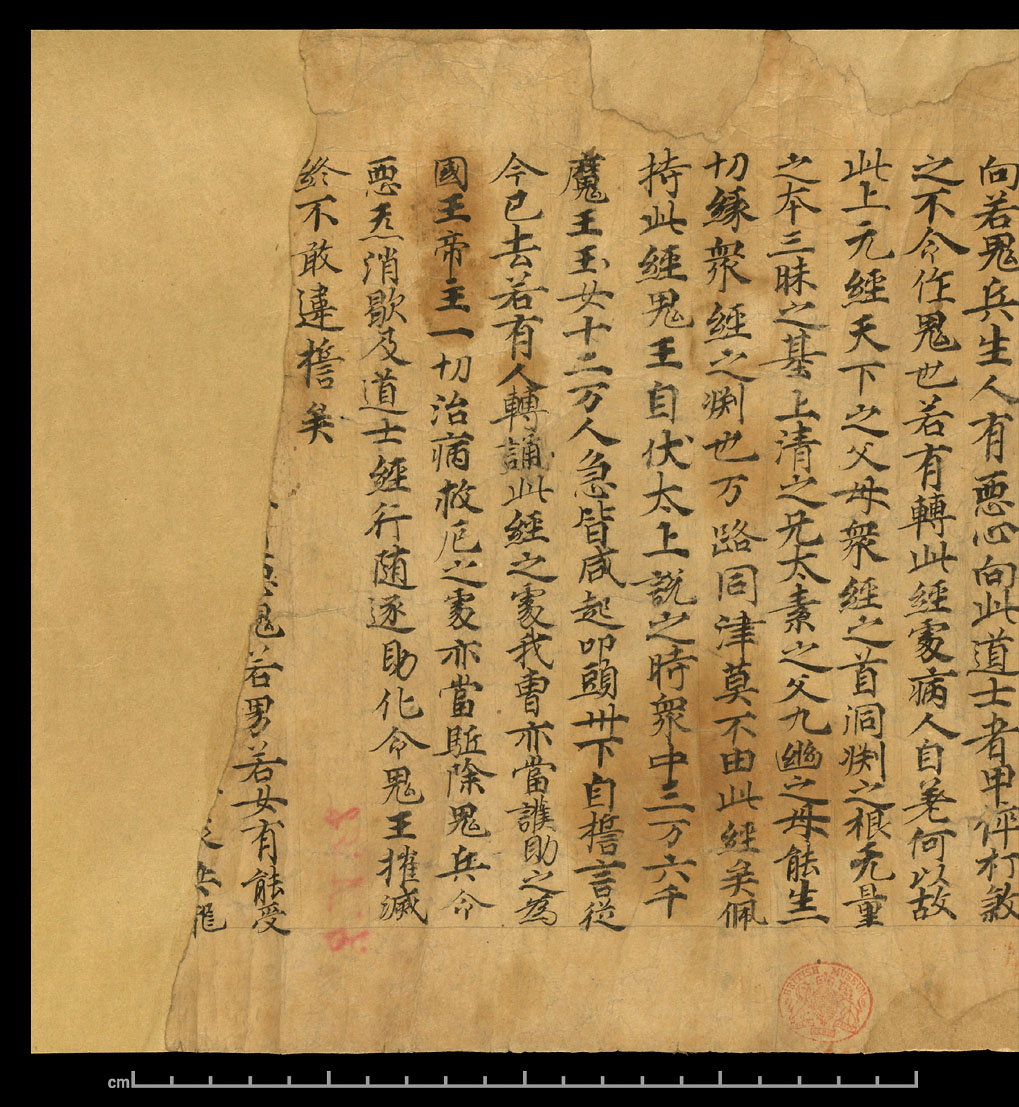 向若鬼兵生人有惡心向此道士者甲倅打煞
之不令作鬼也若有轉此經處病人自差何以故
此上元經天下之父母衆經之首洞渕之根无量
之本三昧之基上清之兄太素之父九幽之母能生一
切緣衆經之渕也万路同津莫不由此經矣佩
持此經鬼王自伏太上說之時衆中三万六千
魔王玉女十二万人急皆咸起叩頭卅下自擔言從
今已去若有人轉誦此經之處我曹亦當護助之為
國王帝主一切治病救厄之處亦當駈除鬼兵令
惡炁消歇及道士經行随逐助化令鬼王摧滅
終不敢違擔矣
鬼若男若女有能受
BRITISH MUSEUM
cm